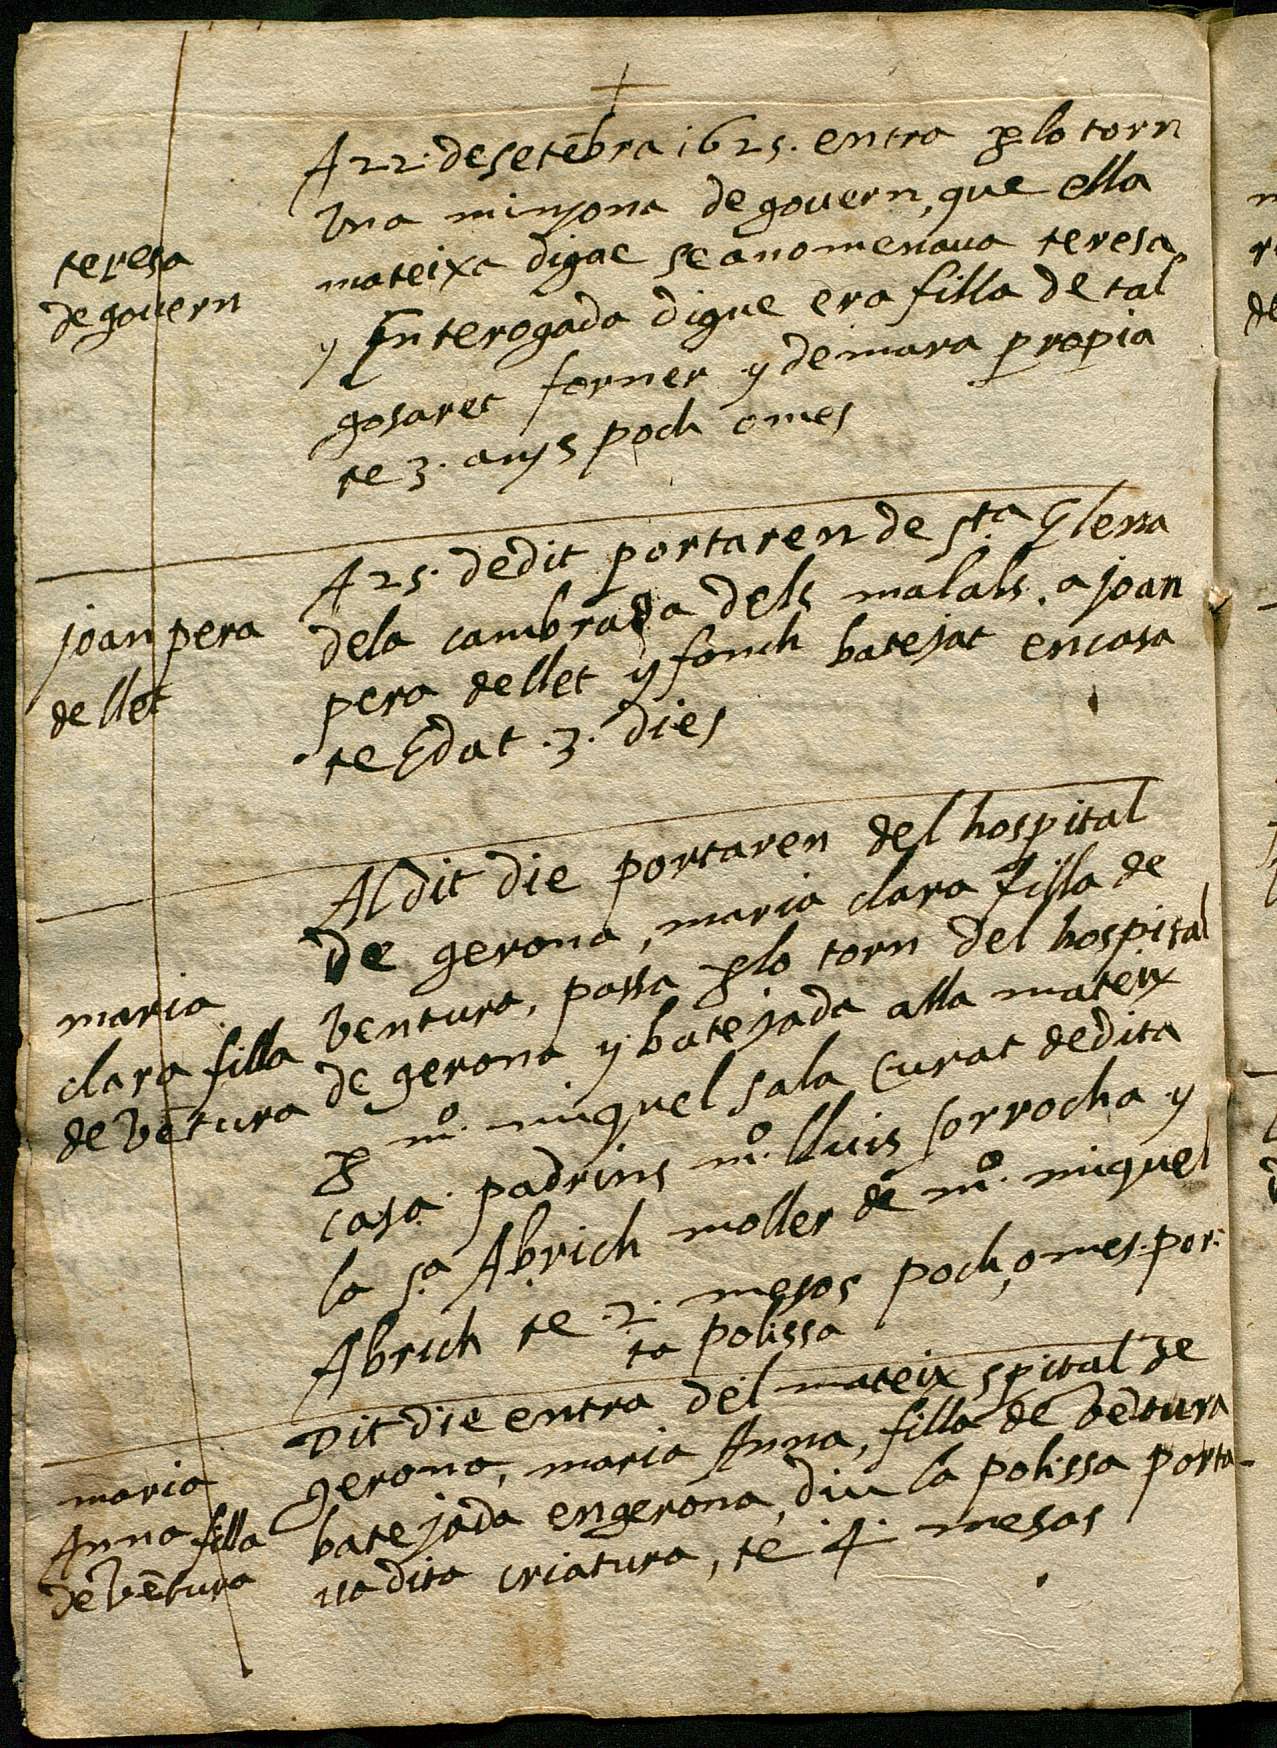 +
A 22. de setēbra 1625. entra p lo torn
teresa
de govern
una minyona de govern, que ella
mateixa digue se anomenaua teresa
y Enterogada digue era filla de tal
gosaret forner y de mara propia
te 3. anys poch omes
joan pera
de llet
A 25. de dit portaren de Sta Elena
dela cambrada dels malals. a joan
pera de llet y fonch batejat en casa
te Edat .3. dies
maria
clara filla
de vētura
Al dit die portaren del hospital
de gerona, maria clara filla de
ventura, passa p lo torn del hospital
de gerona y batejada alla mateix
p mº. miquel sala Curat de dita
casa. padrins mº. lluis sorrocha y
la sª Abrich moller de mº. miquel
Abrich te .2. mesos poch, o mes. por:
ta polissa
maria
Anna filla
de vētura
Dit die entra del mateix spital de
gerona, maria Anna, filla de vētura
batejada en gerona, diu la polissa porta-
ua dita criatura, te .4. mesos